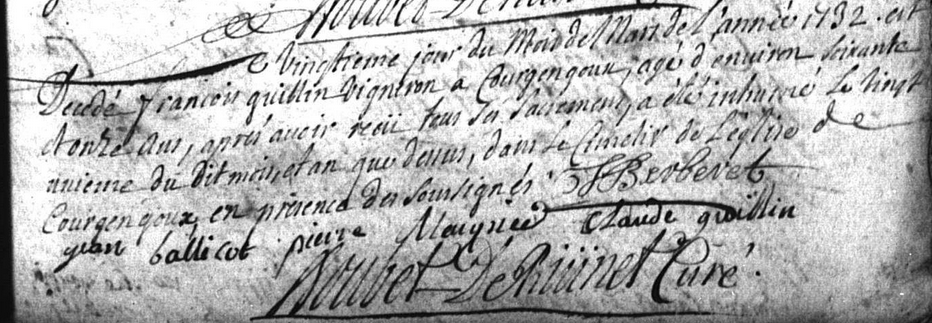 Vingtieme jour du Mois de Mars de l'année 1732. est
Decedé françois quillin Vigneron a Courgengoux, agé d'environ soixante
et onze ans, apres avoir reçu tous ses sacrements, a été inhumé Le vingt
unieme du dit mois, et an que dessus, dans le Cimetir de L'église de
Courgengoux, en présence des soussignés. Berberet
jean ballicot pierre claude quillin
Curé